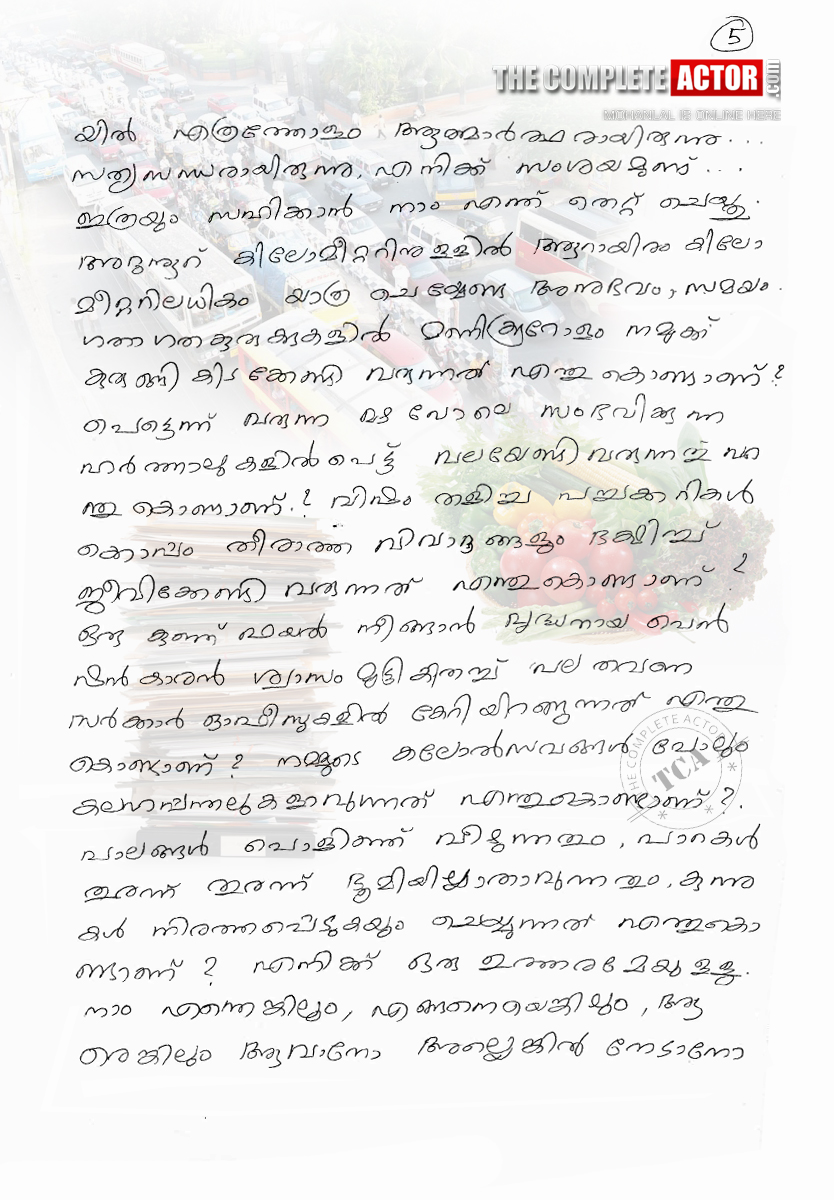 5
THE COMPLETE ACTOR .com
MOHANLAL IS ONLINE HERE
യിൽ എത്രത്തോളം ആത്മാർത്ഥരായിരുന്നു...
സത്യസന്ധരായിരുന്നു. എനിക്ക് സംശയമുണ്ട്...
ഇത്രയും സഹിക്കാൻ നാം എന്ത് തെറ്റ് ചെയ്തു.
അറുന്നൂറ് കിലോമീറ്ററിനുള്ളിൽ ആറായിരം കിലോ
മീറ്ററിലധികം യാത്ര ചെയ്യേണ്ട അനുഭവം, സമയം.
ഗതാഗതകുരുക്കുകളിൽ മണിക്കൂറോളം നമുക്ക്
കുരുങ്ങി കിടക്കേണ്ടി വരുന്നത് എന്തു കൊണ്ടാണ്?
പെട്ടെന്ന് വരുന്ന മഴ പോലെ സംഭവിക്കുന്ന
ഹർത്താലുകളിൽ പെട്ട് വലയേണ്ടി വരുന്നത് എ
ന്തു കൊണ്ടാണ്.? വിഷം തളിച്ച പച്ചക്കറികൾ
ക്കൊപ്പം തീരാത്ത വിവാദങ്ങളും ഭക്ഷിച്ച്
ജീവിക്കേണ്ടി വരുന്നത് എന്തുകൊണ്ടാണ്?
ഒരു കുഞ്ഞ് ഫയൽ നീങ്ങാൻ വൃദ്ധനായ പെൻ
ഷൻകാരൻ ശ്വാസം മുട്ടി കിതച്ച് പല തവണ
സർക്കാർ ഓഫീസുകളിൽ കേറിയിറങ്ങുന്നത് എന്തു
കൊണ്ടാണ്? നമ്മുടെ കലോൽസവങ്ങൾ പോലും
കലഹപ്പന്തലുകളാവുന്നത് എന്തുകൊണ്ടാണ്?.
പാലങ്ങൾ പൊളിഞ്ഞ് വീഴുന്നതും, പാറകൾ
തുരന്ന് തുരന്ന് ഭൂമിയില്ലാതാവുന്നതും, കുന്നു
കൾ നിരത്തപ്പെടുകയും ചെയ്യുന്നത് എന്തുകൊ
ണ്ടാണ്? എനിക്ക് ഒരു ഉത്തരമേയുള്ളൂ.
നാം എന്തെങ്കിലും, എങ്ങനെയെങ്കിലും, ആ
രെങ്കിലും ആവാനോ അല്ലെങ്കിൽ നേടാനോ
THE COMPLETE ACTOR
TCA